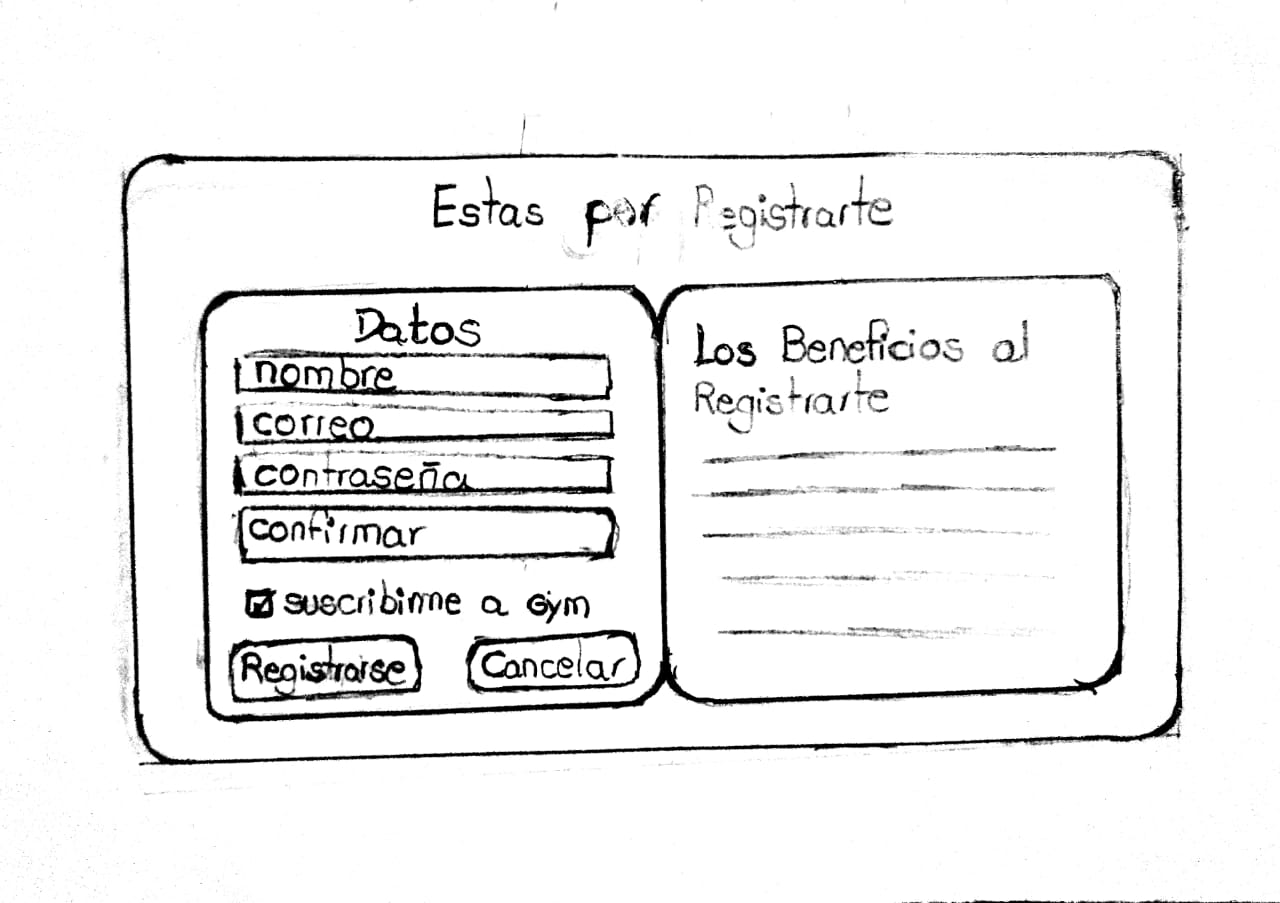 Estas por Registrarte
Datos
nombre
correo
contraseña
confirmar
suscribirme a Gym
Registrarse
Cancelar
Los Beneficios al
Registrarte